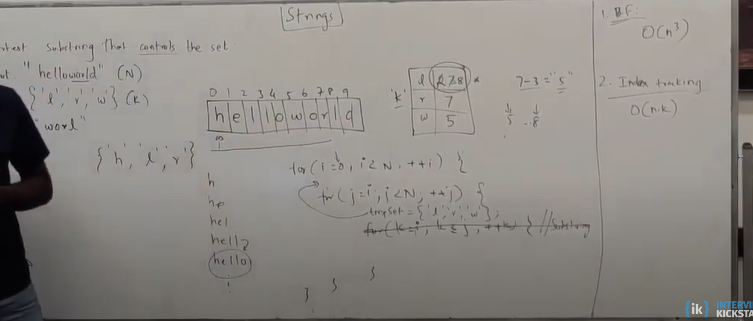 Strings
substring that controls the set
"helloworld" (N)
{'l','r','w'} (K)
"worl"
{'h','l','r'}
0 1 2 3 4 5 6 7 8 9
h e l l o w o r l d
h
he
hel
hell
hello
'k'
l
r 7
w 5
7-3 = "5"
for(i=0, i<N, ++i) {
for(j=i, j<N, ++j) {
tmpset = {'l','r','w'};
for(k=i, k≤j, ++k) { //substring
}
}
}
1. BF:
O(n³)
2. Index tracking
O(n·k)
{ik} INTERVI
KICKSTA